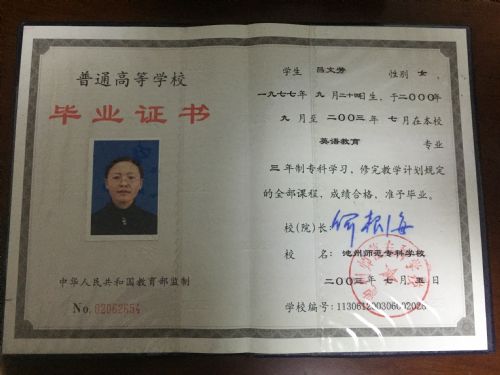 普通高等学校
毕业证书
中华人民共和国教育部监制
No. 02062654
学生 吕文芳 性别 女,
一九七七年 九 月二十四日生, 于二000年
九 月至 二00三 年 七 月在本校
英语教育 专业
三 年制专科学习, 修完教学计划规定
的全部课程, 成绩合格, 准予毕业。
校(院)长: 何根海
校 名: 池州师范专科学校
二00三 年 七 月 五 日
学校编号: